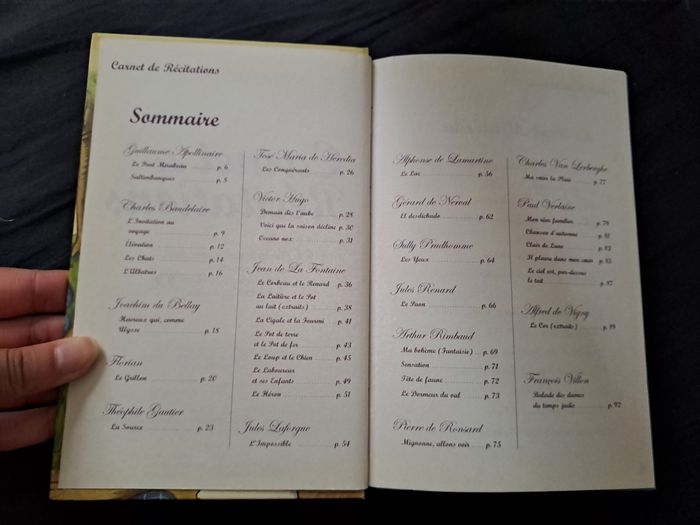 Carnet de Récitations
Sommaire
Guillaume Apollinaire
Le Pont Mirabeau p. 6
Saltimbanques p. 8
Charles Baudelaire
L'Invitation au
voyage p. 9
Élévation p. 12
Les Chats p. 14
L'Albatros p. 16
Joachim du Bellay
Heureux qui, comme
Ulysse p. 18
Florian
Le Grillon p. 20
Théophile Gautier
La Source p. 23
José Maria de Heredia
Les Conquérants p. 26
Victor Hugo
Demain dès l'aube p. 28
Voici que la saison décline p. 30
Oceano nox p. 31
Jean de La Fontaine
Le Corbeau et le Renard p. 36
La Laitière et le Pot
au lait (extraits) p. 38
La Cigale et la Fourmi p. 41
Le Pot de terre
et le Pot de fer p. 43
Le Loup et le Chien p. 45
Le Laboureur
et ses Enfants p. 49
Le Héron p. 51
Jules Laforgue
L'Impossible p. 54
Alphonse de Lamartine
Le Lac p. 56
Gérard de Nerval
El desdichado p. 62
Sully Prudhomme
Les Yeux p. 64
Jules Renard
Le Paon p. 66
Arthur Rimbaud
Ma bohème (Fantaisie) p. 69
Sensation p. 71
Tête de faune p. 72
Le Dormeur du val p. 73
Pierre de Ronsard
Mignonne, allons voir p. 75
Charles Van Lerberghe
Ma sœur la Pluie p. 77
Paul Verlaine
Mon rêve familier p. 79
Chanson d'automne p. 81
Clair de Lune p. 82
Il pleure dans mon cœur p. 85
Le ciel est, par-dessus
le toit p. 87
Alfred de Vigny
Le Cor (extraits) p. 89
François Villon
Balade des dames
du temps jadis p. 92